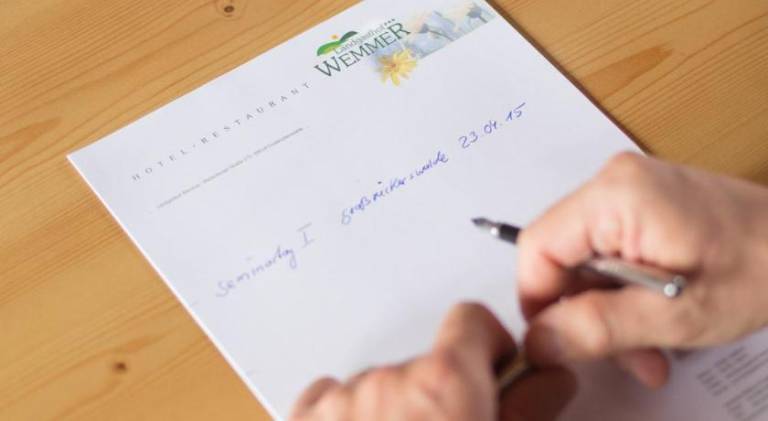 Landgasthof ***
WEMMER
HOTEL · RESTAURANT
Seminartag I Großrückerswalde 23.04.15